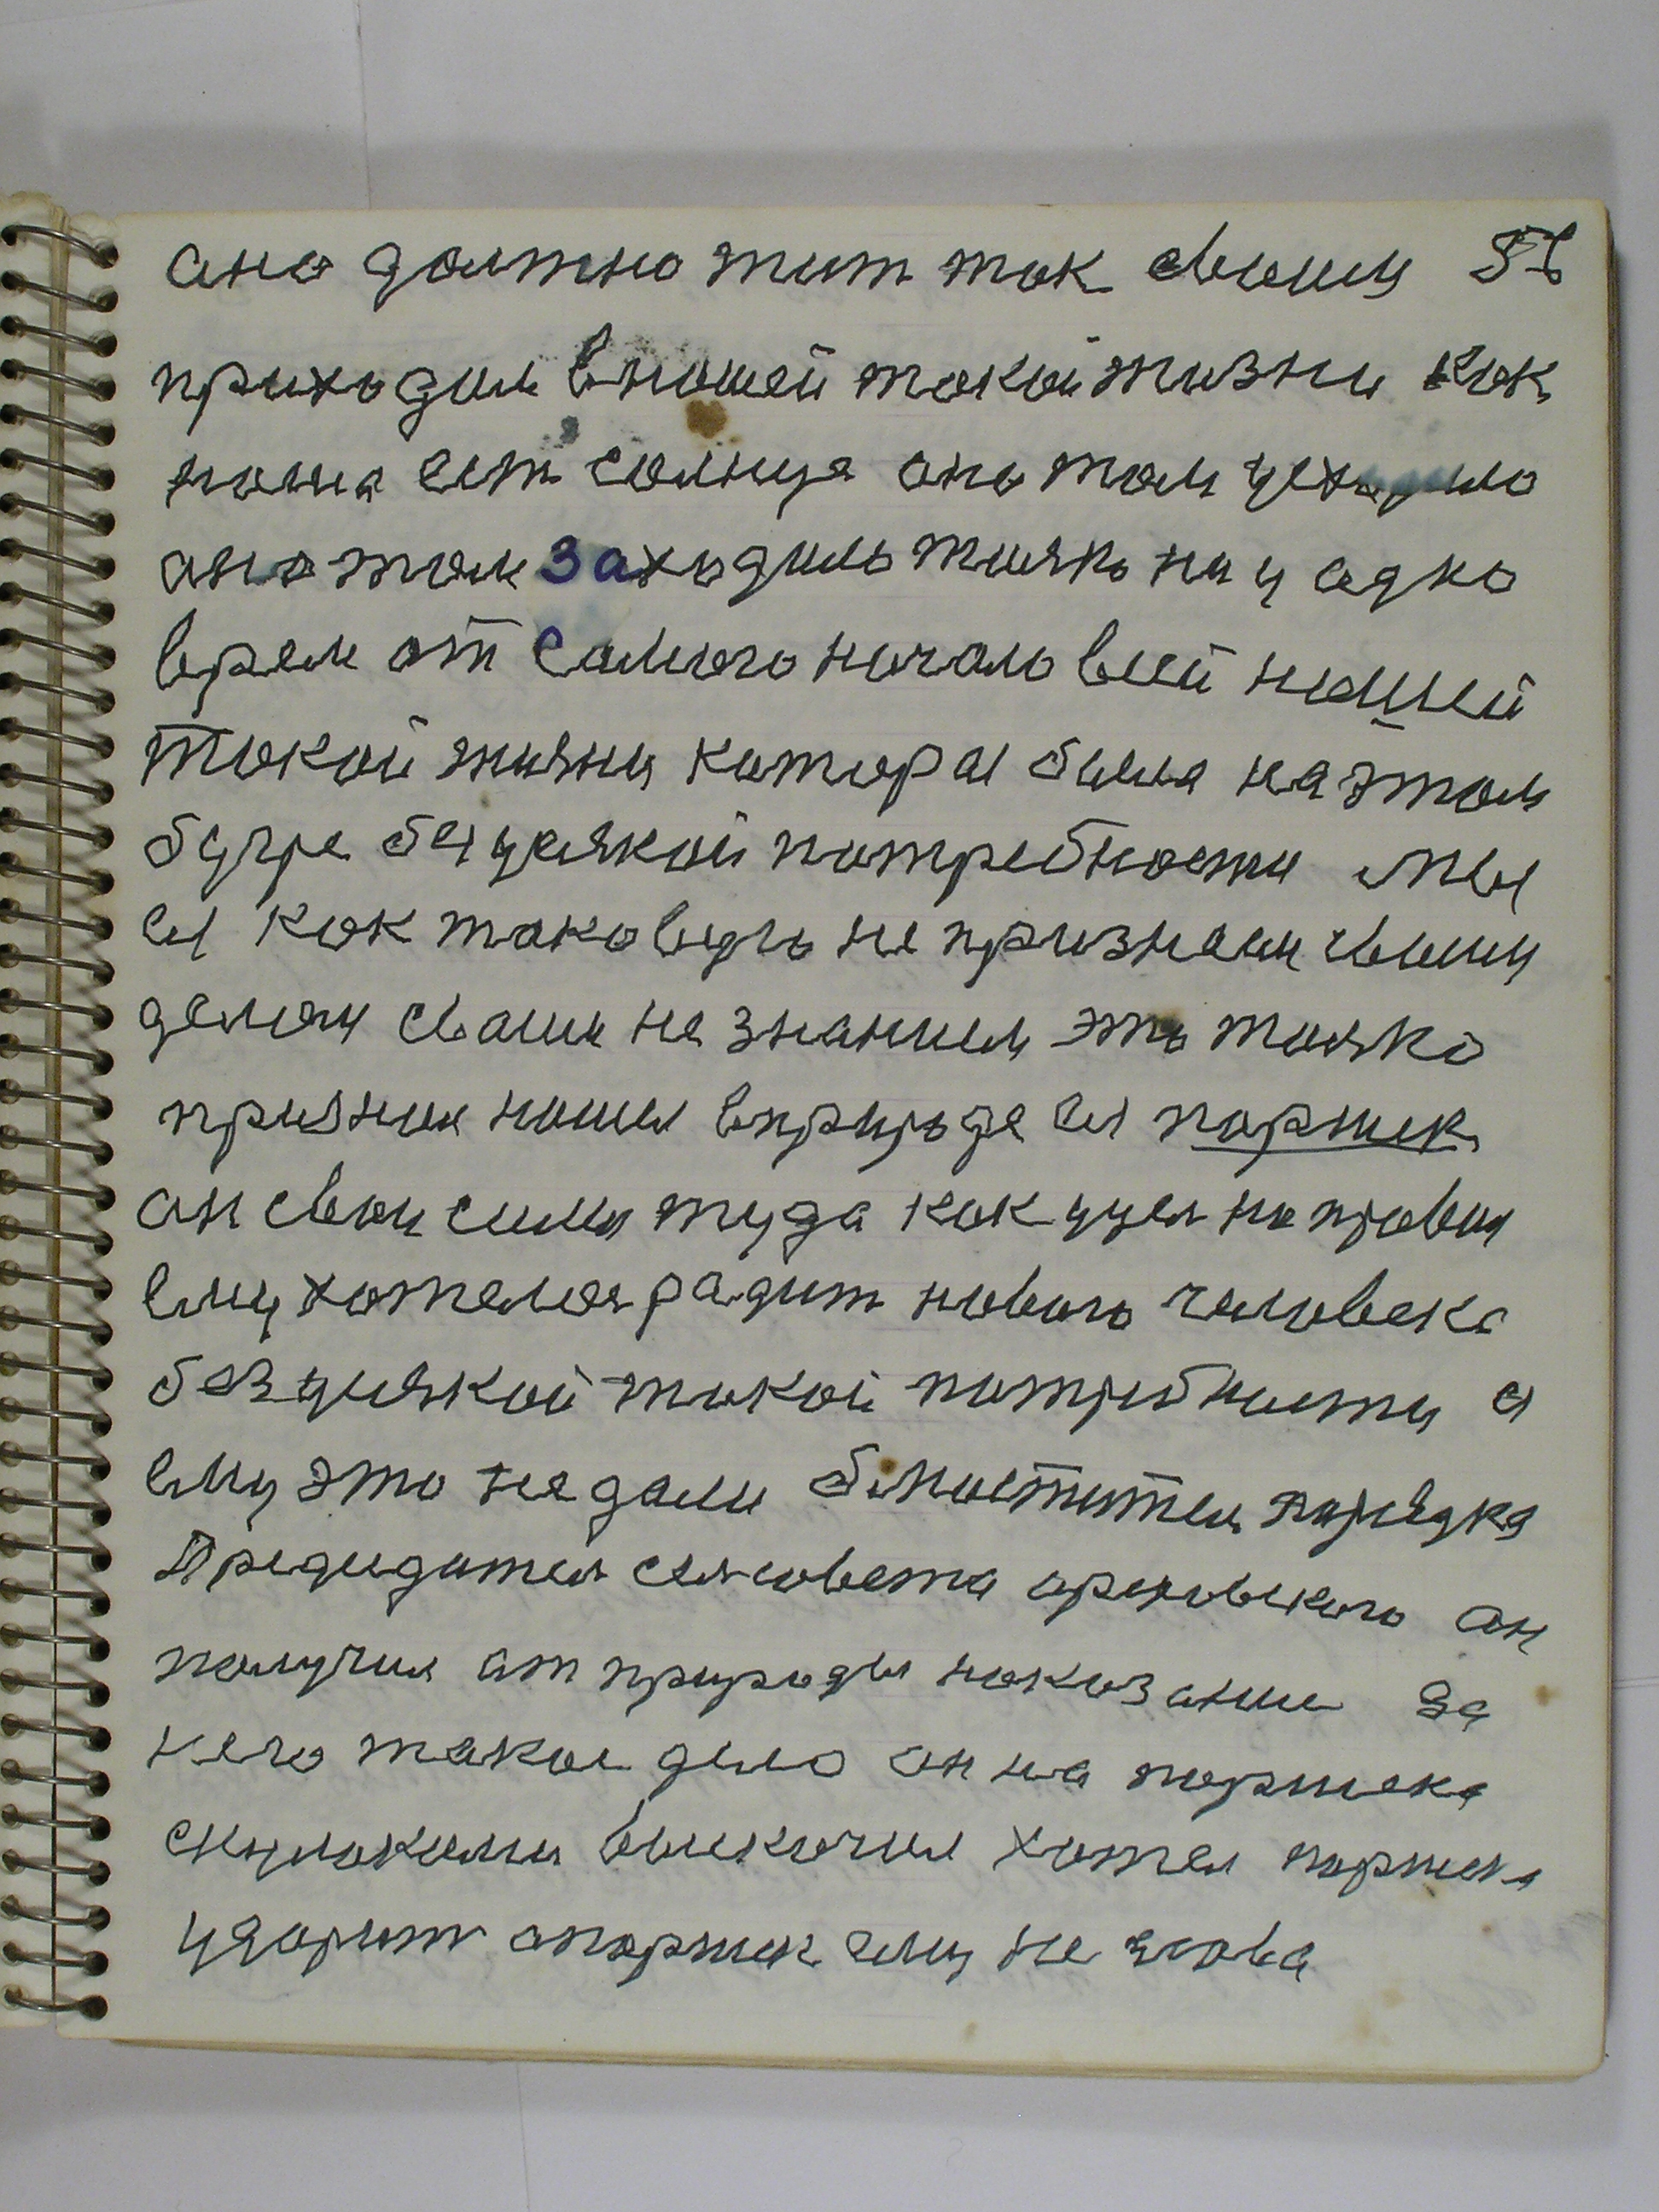 ано должно жит так своим 56
приходим внашей такой жизни как
наша ест солнца ано там усходило
ано там заходило тилко ни у адно
врем от самого начало всей нашей
такой жизни каторая была на этом
бугре без усякой потребности мы
ея как таковую не признаем своим
делам сваим не знанием эта толко
признал нашел вприроде ея паршек
ан свои силы туда как узял направил
ему хотелося радит новаго человека
без усякой такой потребности а
ему это не дали блюстители порядка
Предцедател селсовета ореховского ан
получил ат природы наказание за
него такое дело ан на паршека
скулаками выскочил хотел паршека
ударит а паршек ему не